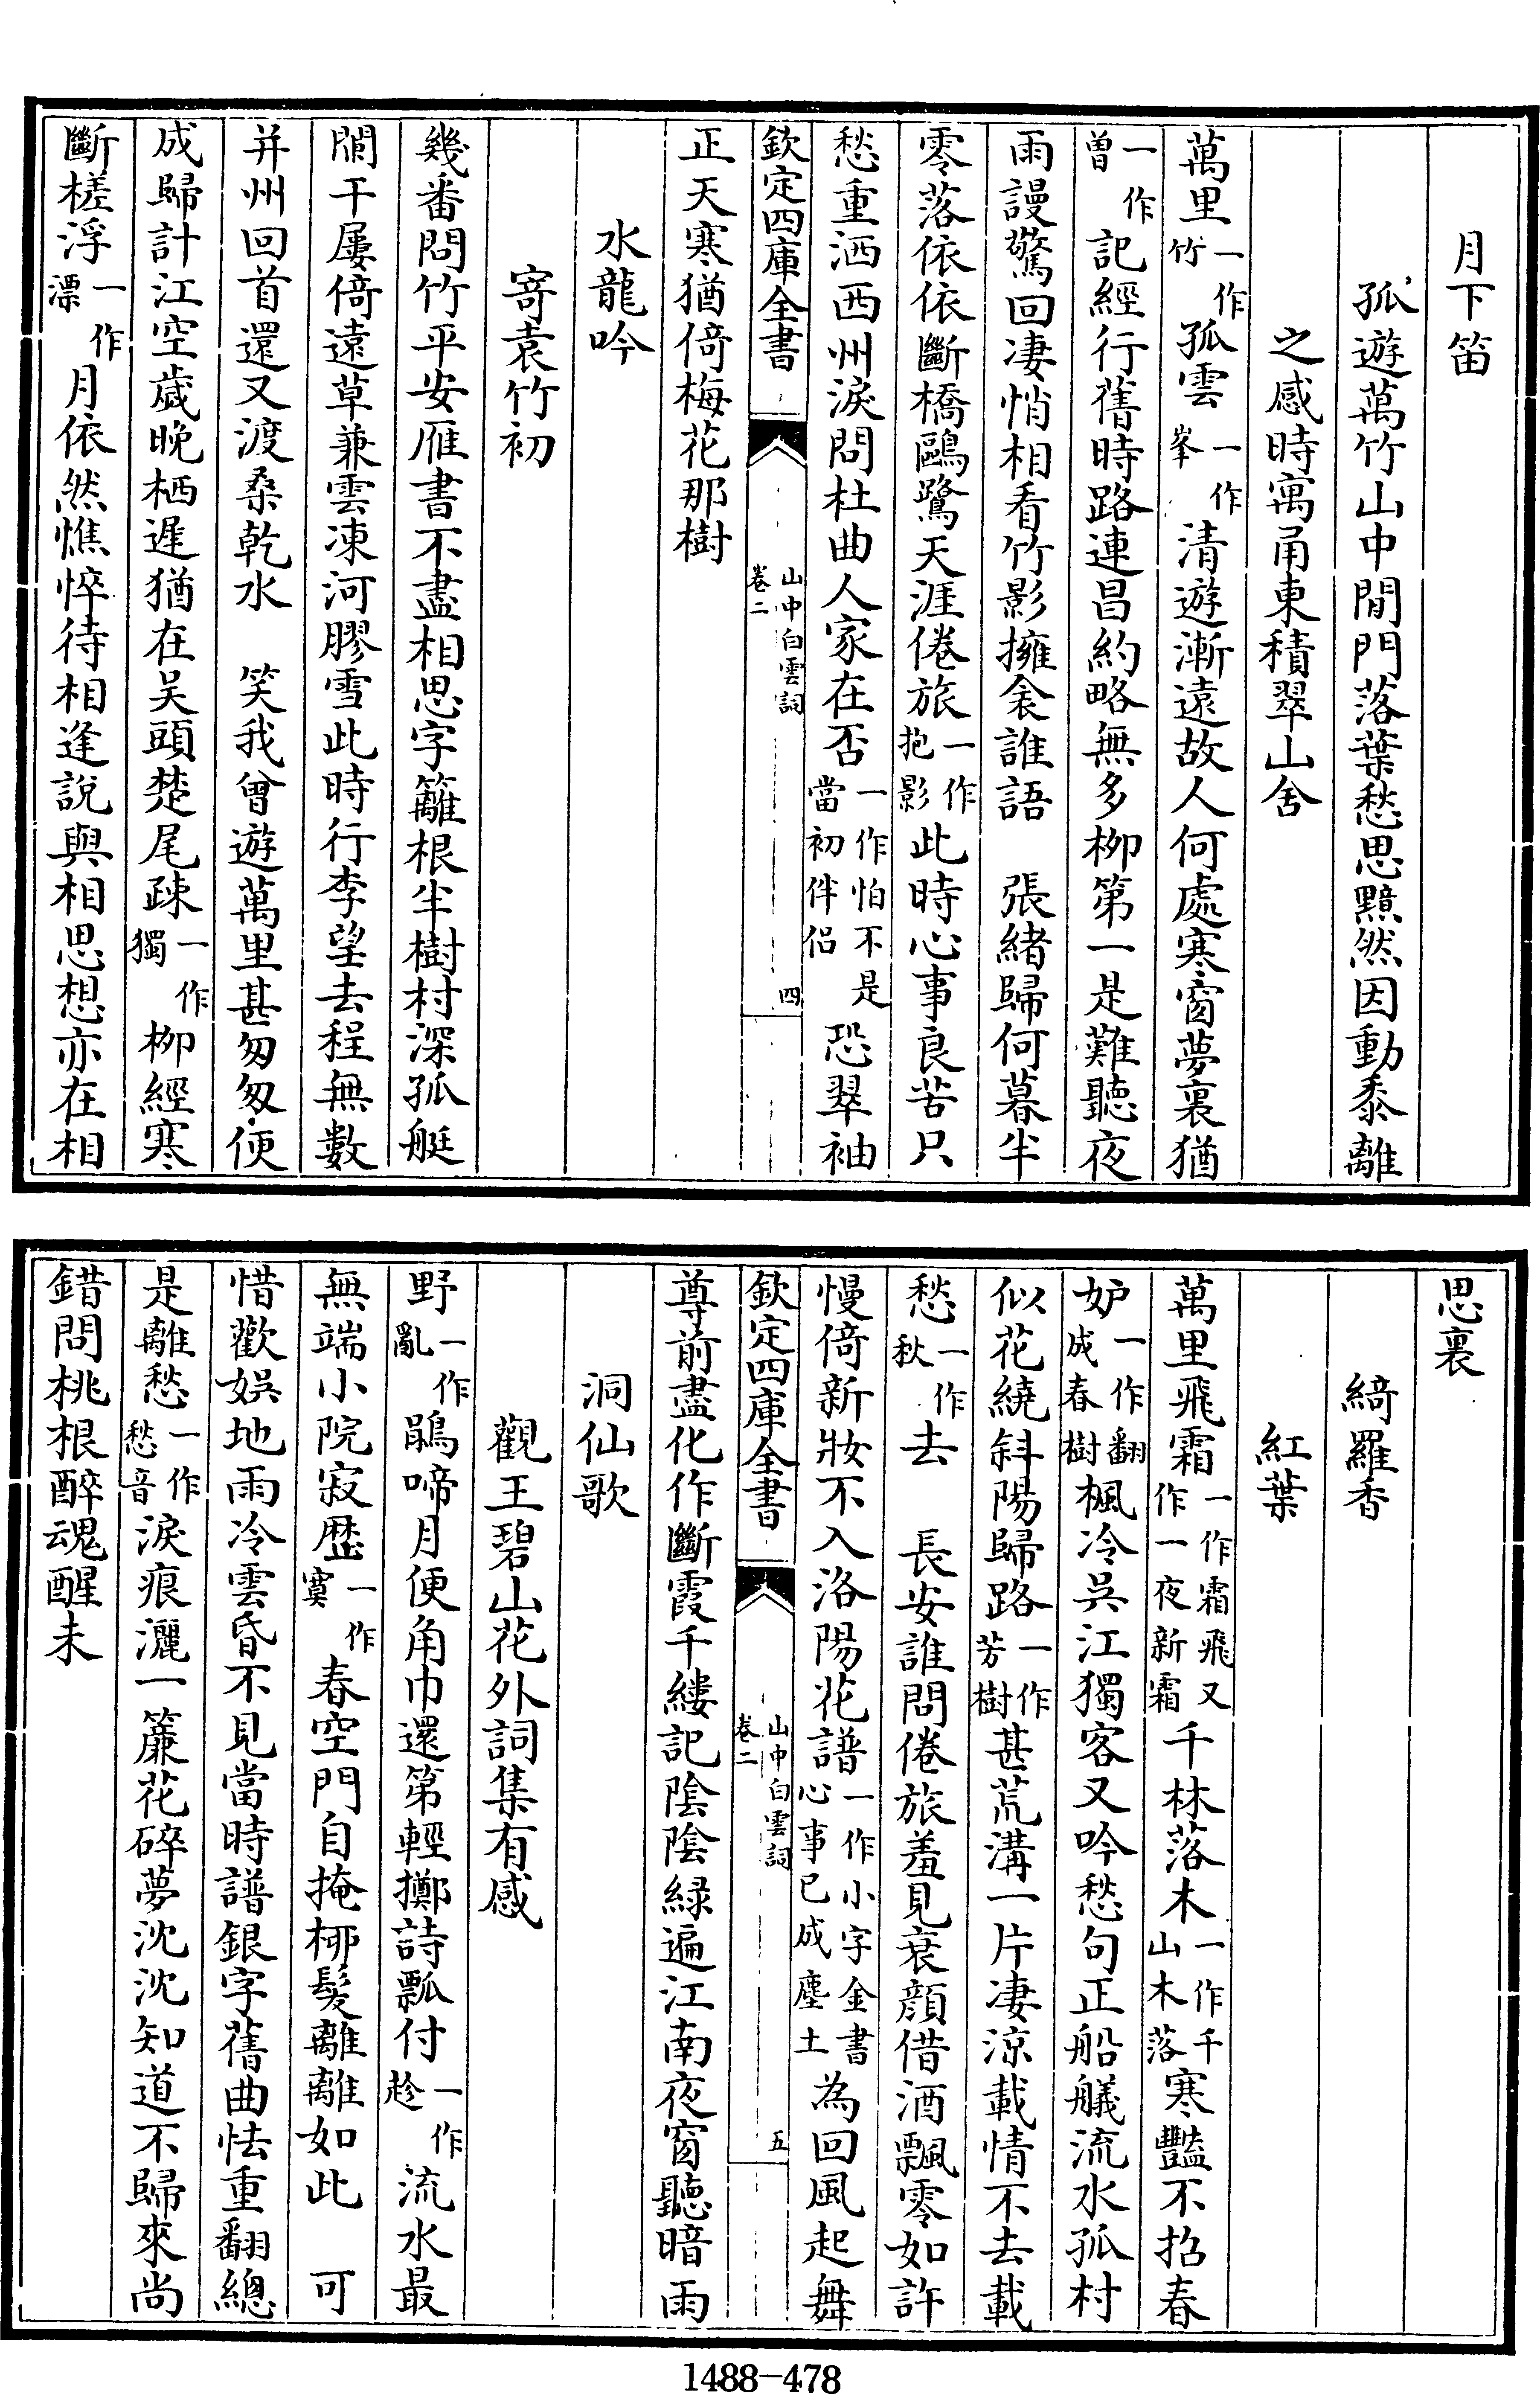 月下笛
孤遊萬竹山中閒門落葉愁思黯然因動黍離
之感時寓甬東積翠山舍
萬里一作竹孤雲一作峯清遊漸遠故人何處寒窗夢裏猶
一作曽記經行舊時路連昌約略無多栁第一是難聽夜
雨謾驚回淒悄相看竹影擁衾誰語　張緒歸何暮半
零落依依斷橋鷗鷺天涯倦旅一作抱影此時心事良苦只
愁重洒西州淚問杜曲人家在否一作怕不是當初伴侣恐翠袖
欽定四庫全書　山中白雲詞卷二　四
正天寒猶倚梅花那樹
水龍吟
寄袁竹初
幾番問竹平安雁書不盡相思字籬根半樹村深孤艇
闌干屢倚遠草兼雲凍河膠雪此時行李望去程無數
并州回首還又渡桑乾水　笑我曾遊萬里甚匆匆便
成歸計江空歲晚栖遲猶在吴頭楚尾疎一作獨栁經寒
斷槎浮一作漂月依然憔悴待相逢說與相思想亦在相
思裏
綺羅香
紅葉
萬里飛霜一作霜飛又作一夜新霜千林落木一作千山木落寒豔不招春
妒一作翻成春樹楓冷吳江獨客又吟愁句正船艤流水孤村
似花繞斜陽歸路一作芳樹甚荒溝一片淒涼載情不去載
愁一作秋去　長安誰問倦旅羞見衰顏借酒飄零如許
慢倚新妝不入洛陽花譜一作小字金書心事已成塵土為回風起舞
欽定四庫全書　山中白雲詞卷二　五
尊前盡化作斷霞千縷記陰陰緑遍江南夜窗聽暗雨
洞仙歌
觀王碧山花外詞集有感
野一作亂鵑啼月便角巾還第輕擲詩瓢付一作趁流水最
無端小院寂歴一作寞春空門自掩桺髮離離如此　可
惜歡娛地雨冷雲昏不見當時譜銀字舊曲怯重翻總
是離愁一作愁音淚痕灑一簾花碎夢沈沈知道不歸來尚
錯問桃根醉魂醒未
1488-478